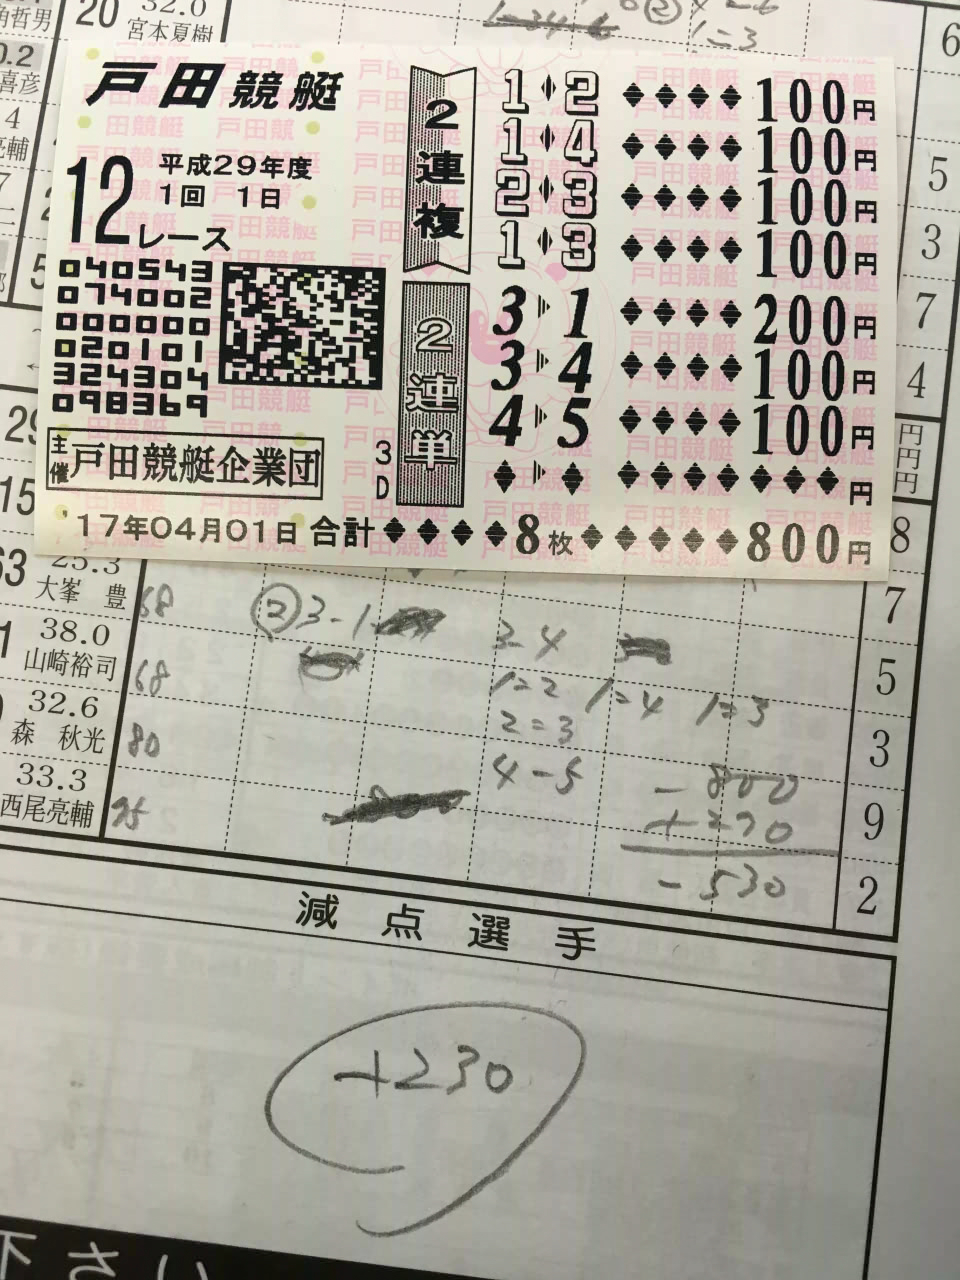 角哲男
20
32.0
宮本夏樹
1=3
6
0.2
喜彦
4
亮輔
5
3
7
4
戸田競艇
12レース
平成29年度
1回 1日
040543
074002
000000
020101
324304
098369
主催 戸田競艇企業団
3D
2連複
1♦2 ♦♦♦♦100円
1♦4 ♦♦♦♦100円
2♦3 ♦♦♦♦100円
1♦3 ♦♦♦♦100円
2連単
3▶1 ♦♦♦♦200円
3▶4 ♦♦♦♦100円
4▶5 ♦♦♦♦100円
♦▶♦ ♦♦♦♦♦♦♦♦円
'17年04月01日 合計♦♦♦♦8枚♦♦♦♦♦800円
円
円
円
29
15
63
25.3
大峯 豊
68
②3-1
3-4
8
7
1
38.0
山崎裕司
68
1=2 1=4 1=3
5
32.6
森 秋光
80
2=3
3
33.3
西尾亮輔
95
4-5
-800
+270
-530
9
2
減点選手
+230
いち不